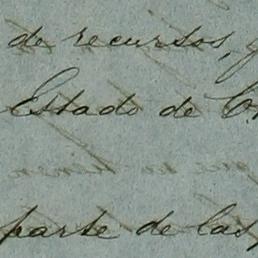 de recursos, y
Estado de
parte de las